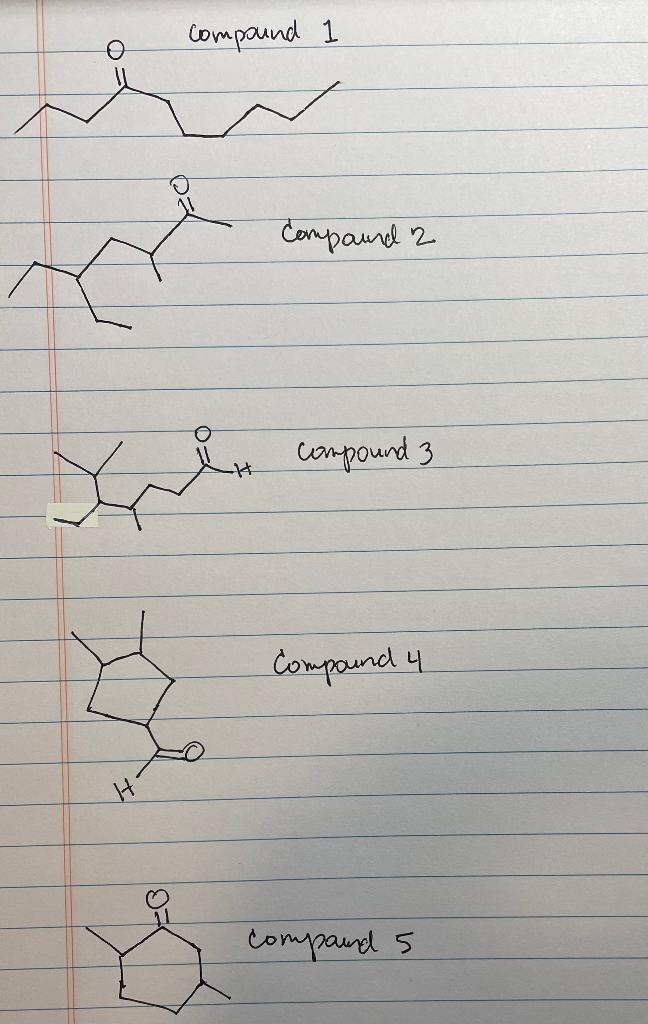 O
Compound 1
O
Compound 2
O
H
Compound 3
Compound 4
O
H
O
Compound 5